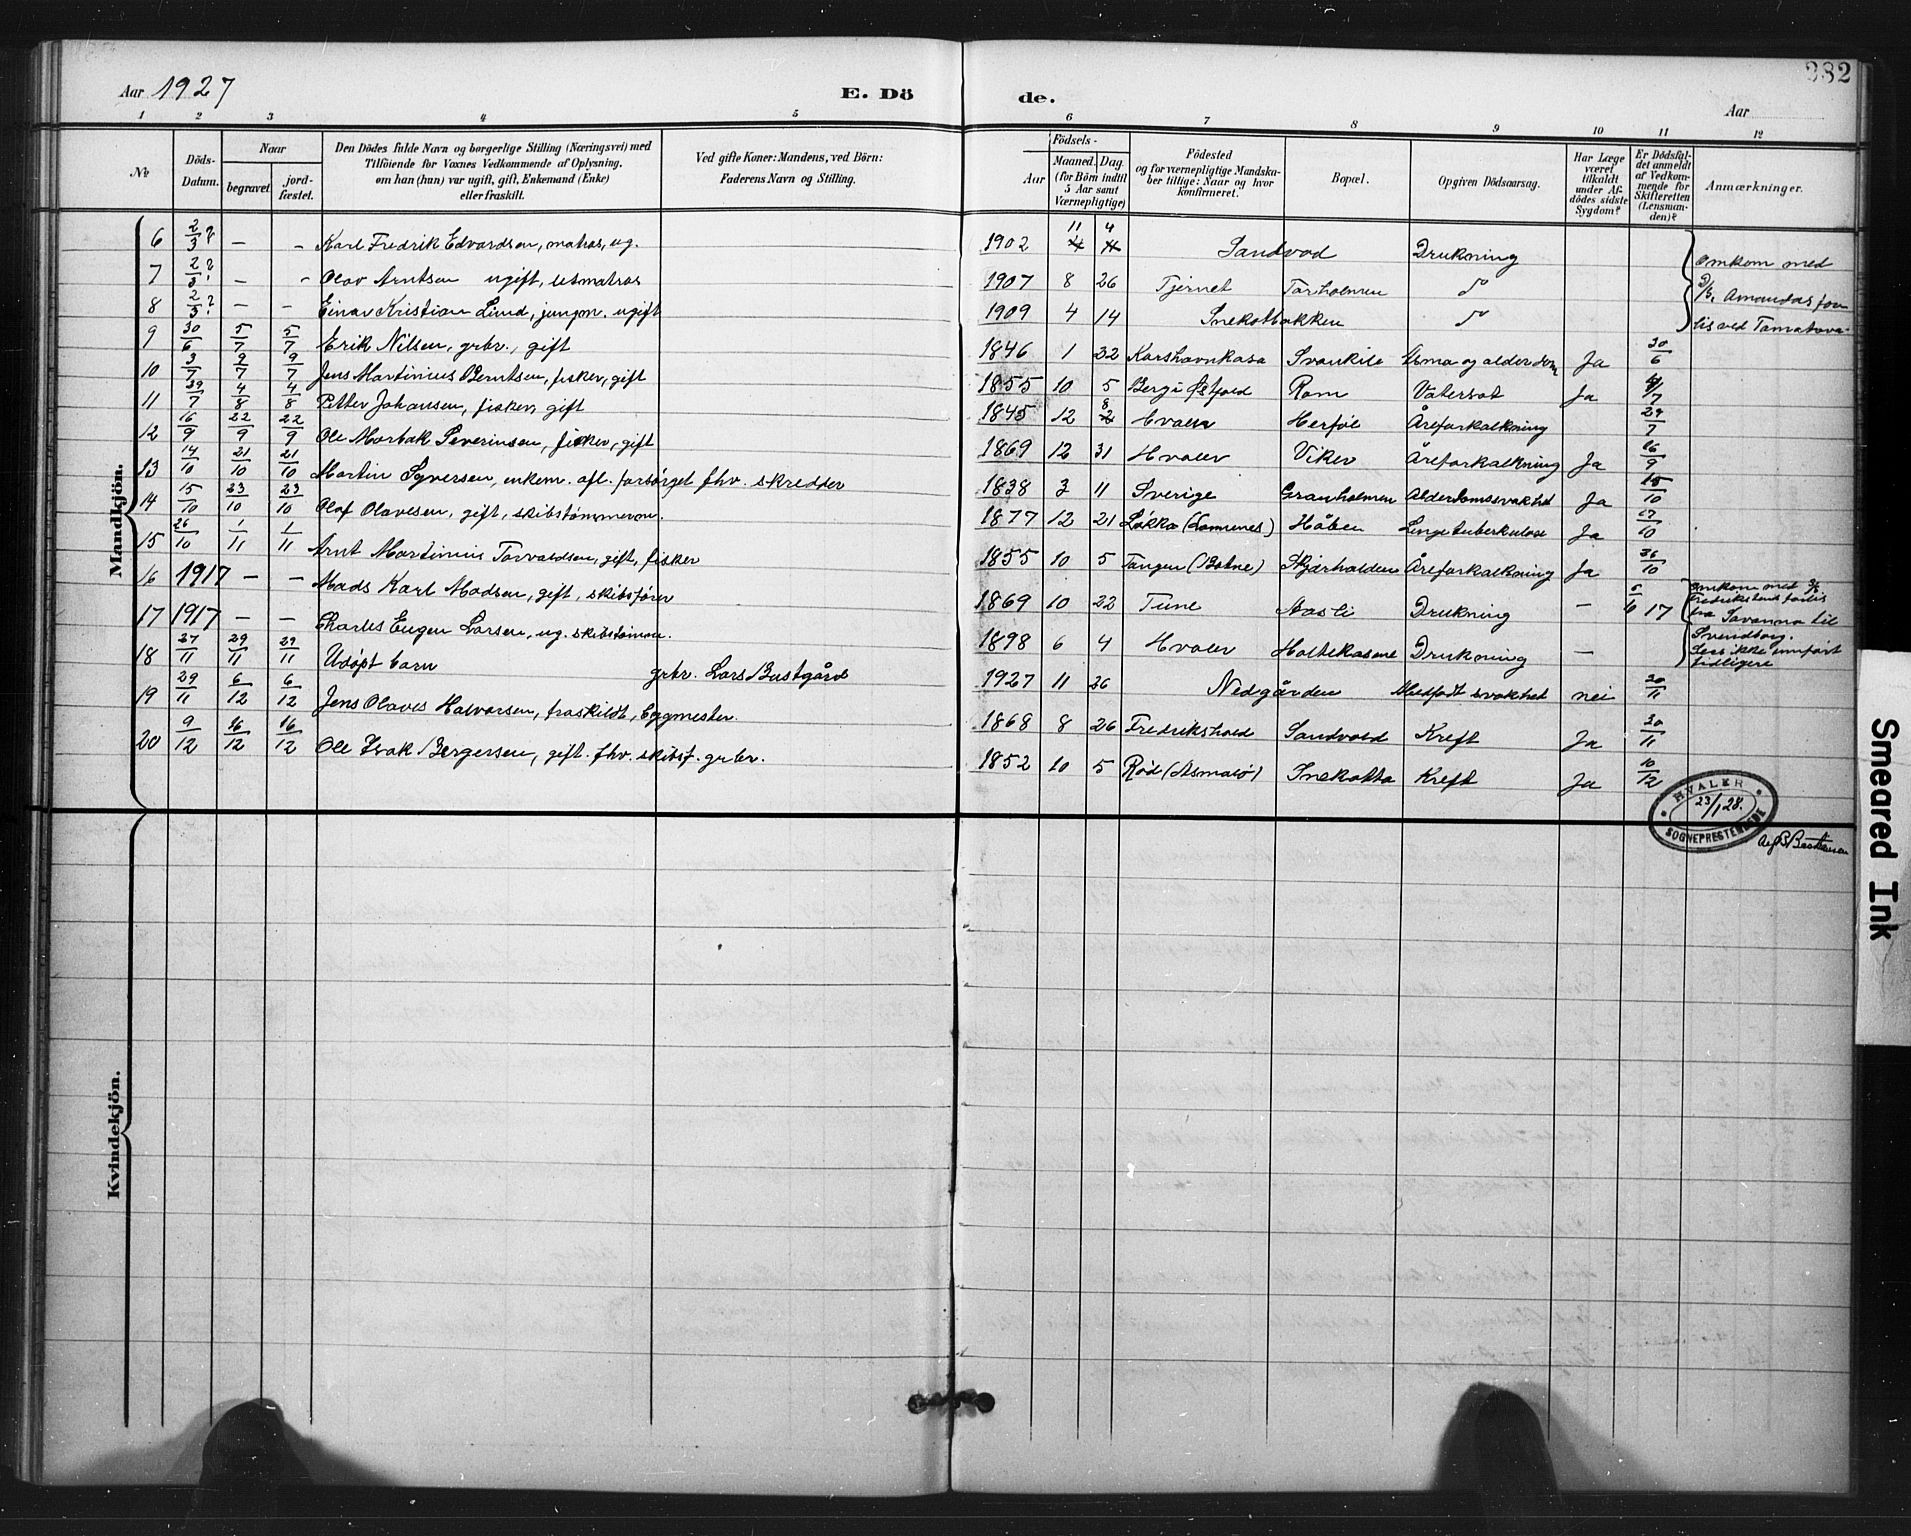 Aar 1927
E. Dö de.
Aar
382
1 2 3 4 5 6 7 8 9 10 11 12
No
Döds-Datum.
Naar
begravet
jord-fæstet.
Den Dödes fulde Navn og borgerlige Stilling (Næringsvei) med
Tilföiende for Voxnes Vedkommende af Oplysning,
om han (hun) var ugift, gift, Enkemand (Enke)
eller fraskilt.
Ved gifte Koner: Mandens, ved Börn:
Faderens Navn og Stilling.
Födsels-
Aar
Maaned. Dag.
(for Börn indtil
5 Aar samt
Værnepligtige)
Födested
og for værnepligtige Mandska-
ber tillige: Naar og hvor
konfirmeret.
Bopæl.
Opgiven Dödsaarsag.
Har Læge
været
tilkaldt
under Af-
dödes sidste
Sygdom?
Er Dödsfal-
det anmeldt
af Vedkom-
mende for
Skifteretten
(Lensman-
den)?
Anmærkninger.
Mandkjön.
6 2/3? — – Karl Fredrik Edvardsen, matros, ug. 1902 11 4 Sandvod Drukning
7 2/3? — – Olav Arntsen ugift, letmatros 1907 8 26 Tjernet Torholmen do
8 2/3? — – Einar Kristian Lund, jungm. ugift 1909 4 14 Snekotbakken do
omkom med
Amandas for
lis ved
9 30/6 5/7 5/7 Erik Nilsen, grbr., gift 1846 1 22 Svankile Asma og alderdom Ja 30/6
10 3/7 9/7 9/7 Jens Martinius Berntsen, fisker, gift 1855 10 5 Berg i Østfold Rom Vatersot Ja 4/7
11 29/7 4/8 4/8 Petter Johansen, fisker, gift 1845 12 8 Hvaler Herføl Åreforkalkning 29/7
12 16/9 22/9 22/9 Ole Morbak Severinsen, fisker, gift 1869 12 31 Hvaler Viker Åreforkalkning Ja 16/9
13 14/10 21/10 21/10 Martin Syversen, enkem. afl. forsörget fhv. skredder 1838 3 11 Sverige Granholmen Alderdomssvakhet Ja 15/10
14 15/10 23/10 23/10 Olaf Olavesen, gift, skibstømmerm. 1877 12 21 Håben Lungetuberkulose Ja 17/10
15 26/10 1/11 1/11 Arnt Martinius Torvaldsen, gift, fisker 1855 10 5 Tangen (Botne) Skjærhalden Åreforkalkning Ja 26/10
16 1917 — – Mads Karl Madsen, gift, skibsfører 1869 10 22 Tune Aasli Drukning — 6/6 17
17 1917 — – Charles Eugen Larsen, ug. skibstömm. 1898 6 4 Hvaler Holtekasene Drukning —
omkom med
Fredrikstens forlis
fra Savanna til
Svendborg.
Sees ikke innført
tidligere
18 27/11 29/11 29/11 Udøpt barn grbr. Lars Bustgård 1927 11 26 Nedgården Medfødt svakhet nei 30/11
19 29/11 6/12 6/12 Jens Olaves Halvorsen, fraskildt, bygmester. 1868 8 26 Fredrikshald Sandvold Kreft Ja 30/11
20 9/12 16/12 16/12 Ole Isak Bergersen, gift. fhv. skibsf. grbr. 1852 10 5 Rød (Asmalø) Snekotta Kreft Ja 10/12
HVALER
23/1 28.
SOGNEPRESTEMBEDE
Kvindekjön.
Smeared Ink